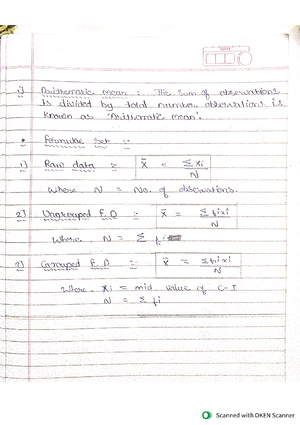 1) Arithmatic mean : The sum of observations
is divided by total number observations is
known as 'Arithmatic mean'.
* Formulae Set :-
1) Raw data :- X̄ = Σxi / N
Where N = No. of observations.
2) Ungrouped F.D :- X̄ = Σfixi / N
Where, N = Σfi
3) Grouped F.D :- X̄ = Σfixi / N
Where, xi = mid value of C-I
N = Σfi
Scanned with OKEN Scanner